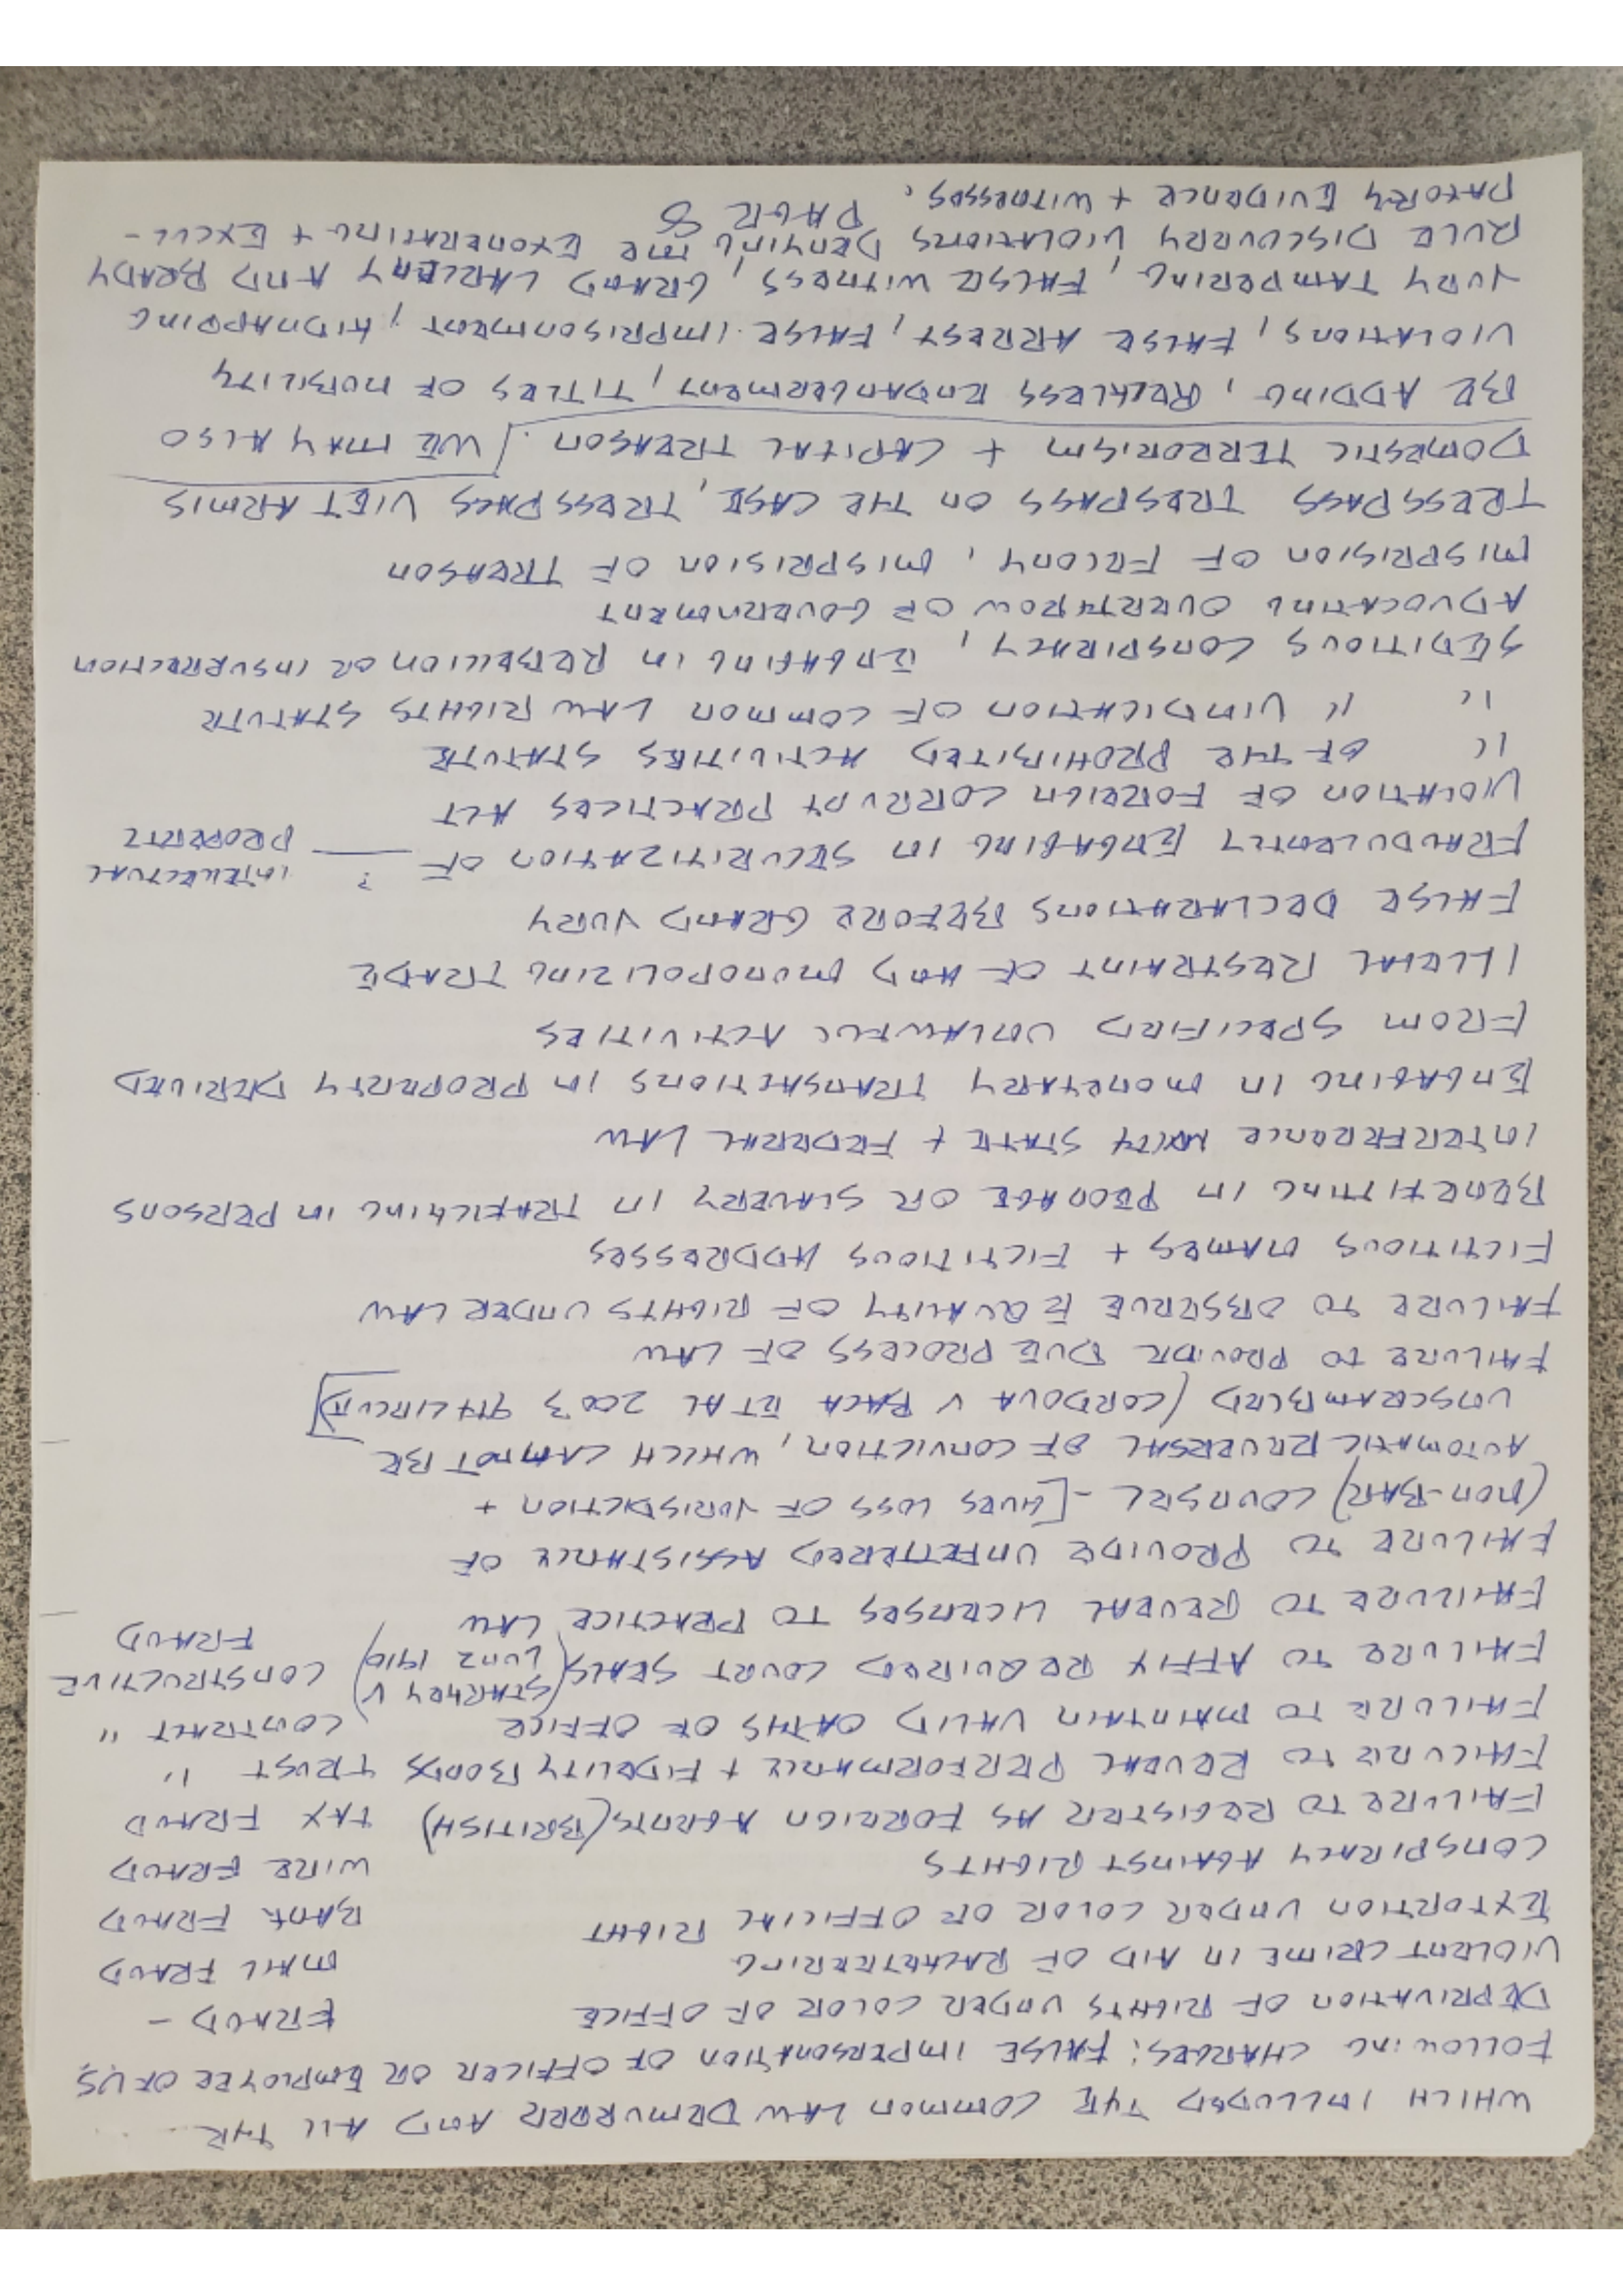 WHICH INCLUDED THE COMMON LAW DEMURRER AND ALL THE
FOLLOWING CHARGES: FALSE IMPERSONATION OF OFFICER OR EMPLOYEE OF US
DEPRIVATION OF RIGHTS UNDER COLOR OF OFFICE FRAUD -
VIOLENT CRIME IN AID OF RACKETEERING MAIL FRAUD
EXTORTION UNDER COLOR OF OFFICIAL RIGHT BANK FRAUD
CONSPIRACY AGAINST RIGHTS WIRE FRAUD
FAILURE TO REGISTER AS FOREIGN AGENTS (BRITISH) TAX FRAUD
FAILURE TO REVEAL PERFORMANCE + FIDELITY BONDS TRUST "
FAILURE TO MAINTAIN VALID OATHS OF OFFICE CONTRACT "
FAILURE TO AFFIX REQUIRED COURT SEALS (STARKEY V LUNZ 1910) CONSTRUCTIVE FRAUD
FAILURE TO REVEAL LICENSES TO PRACTICE LAW
FAILURE TO PROVIDE UNFETTERED ASSISTANCE OF
(NON-BAR) COUNSEL - [GIVES LOSS OF JURISDICTION +
AUTOMATIC REVERSAL OF CONVICTION, WHICH CANNOT BE
UNSCRAMBLED (CORDOVA V BACA ET AL 2003 9TH CIRCUIT)]
FAILURE TO PROVIDE DUE PROCESS OF LAW
FAILURE TO OBSERVE EQUALITY OF RIGHTS UNDER LAW
FICTITIOUS NAMES + FICTITIOUS ADDRESSES
BENEFITTING IN PEONAGE OR SLAVERY IN TRAFICKING IN PERSONS
INTERFERENCE WITH STATE + FEDERAL LAW
ENGAGING IN MONETARY TRANSACTIONS IN PROPERTY DERIVED
FROM SPECIFIED UNLAWFUL ACTIVITIES
ILLEGAL RESTRAINT OF AND MONOPOLIZING TRADE
FALSE DECLARATIONS BEFORE GRAND JURY
FRAUDULENTLY ENGAGING IN SECURITIZATION OF ? INTELLECTUAL PROPERTY
VIOLATION OF FOREIGN CORRUPT PRACTICES ACT
" OF THE PROHIBITED ACTIVITIES STATUTE
" " VINDICATION OF COMMON LAW RIGHTS STATUTE
SEDITIOUS CONSPIRACY, ENGAGING IN REBELLION OR INSURRECTION
ADVOCATING OVERTHROW OF GOVERNMENT
MISPRISION OF FELONY, MISPRISION OF TREASON
TRESSPASS TRESPASS ON THE CASE, TRESSPASS VIET ARMIS
DOMESTIC TERRORISM + CAPITAL TREASON. [WE MAY ALSO
BE ADDING, RECKLESS ENDANGERMENT, TITLES OF NOBILITY
VIOLATIONS, FALSE ARREST, FALSE IMPRISONMENT, KIDNAPPING
JURY TAMPERING, FALSE WITNESS, GRAND LARCENY AND BRADY
RULE DISCOVERY VIOLATIONS DENYING ME EXONERATING + EXCUL-
PATORY EVIDENCE + WITNESSES.
PAGE 8